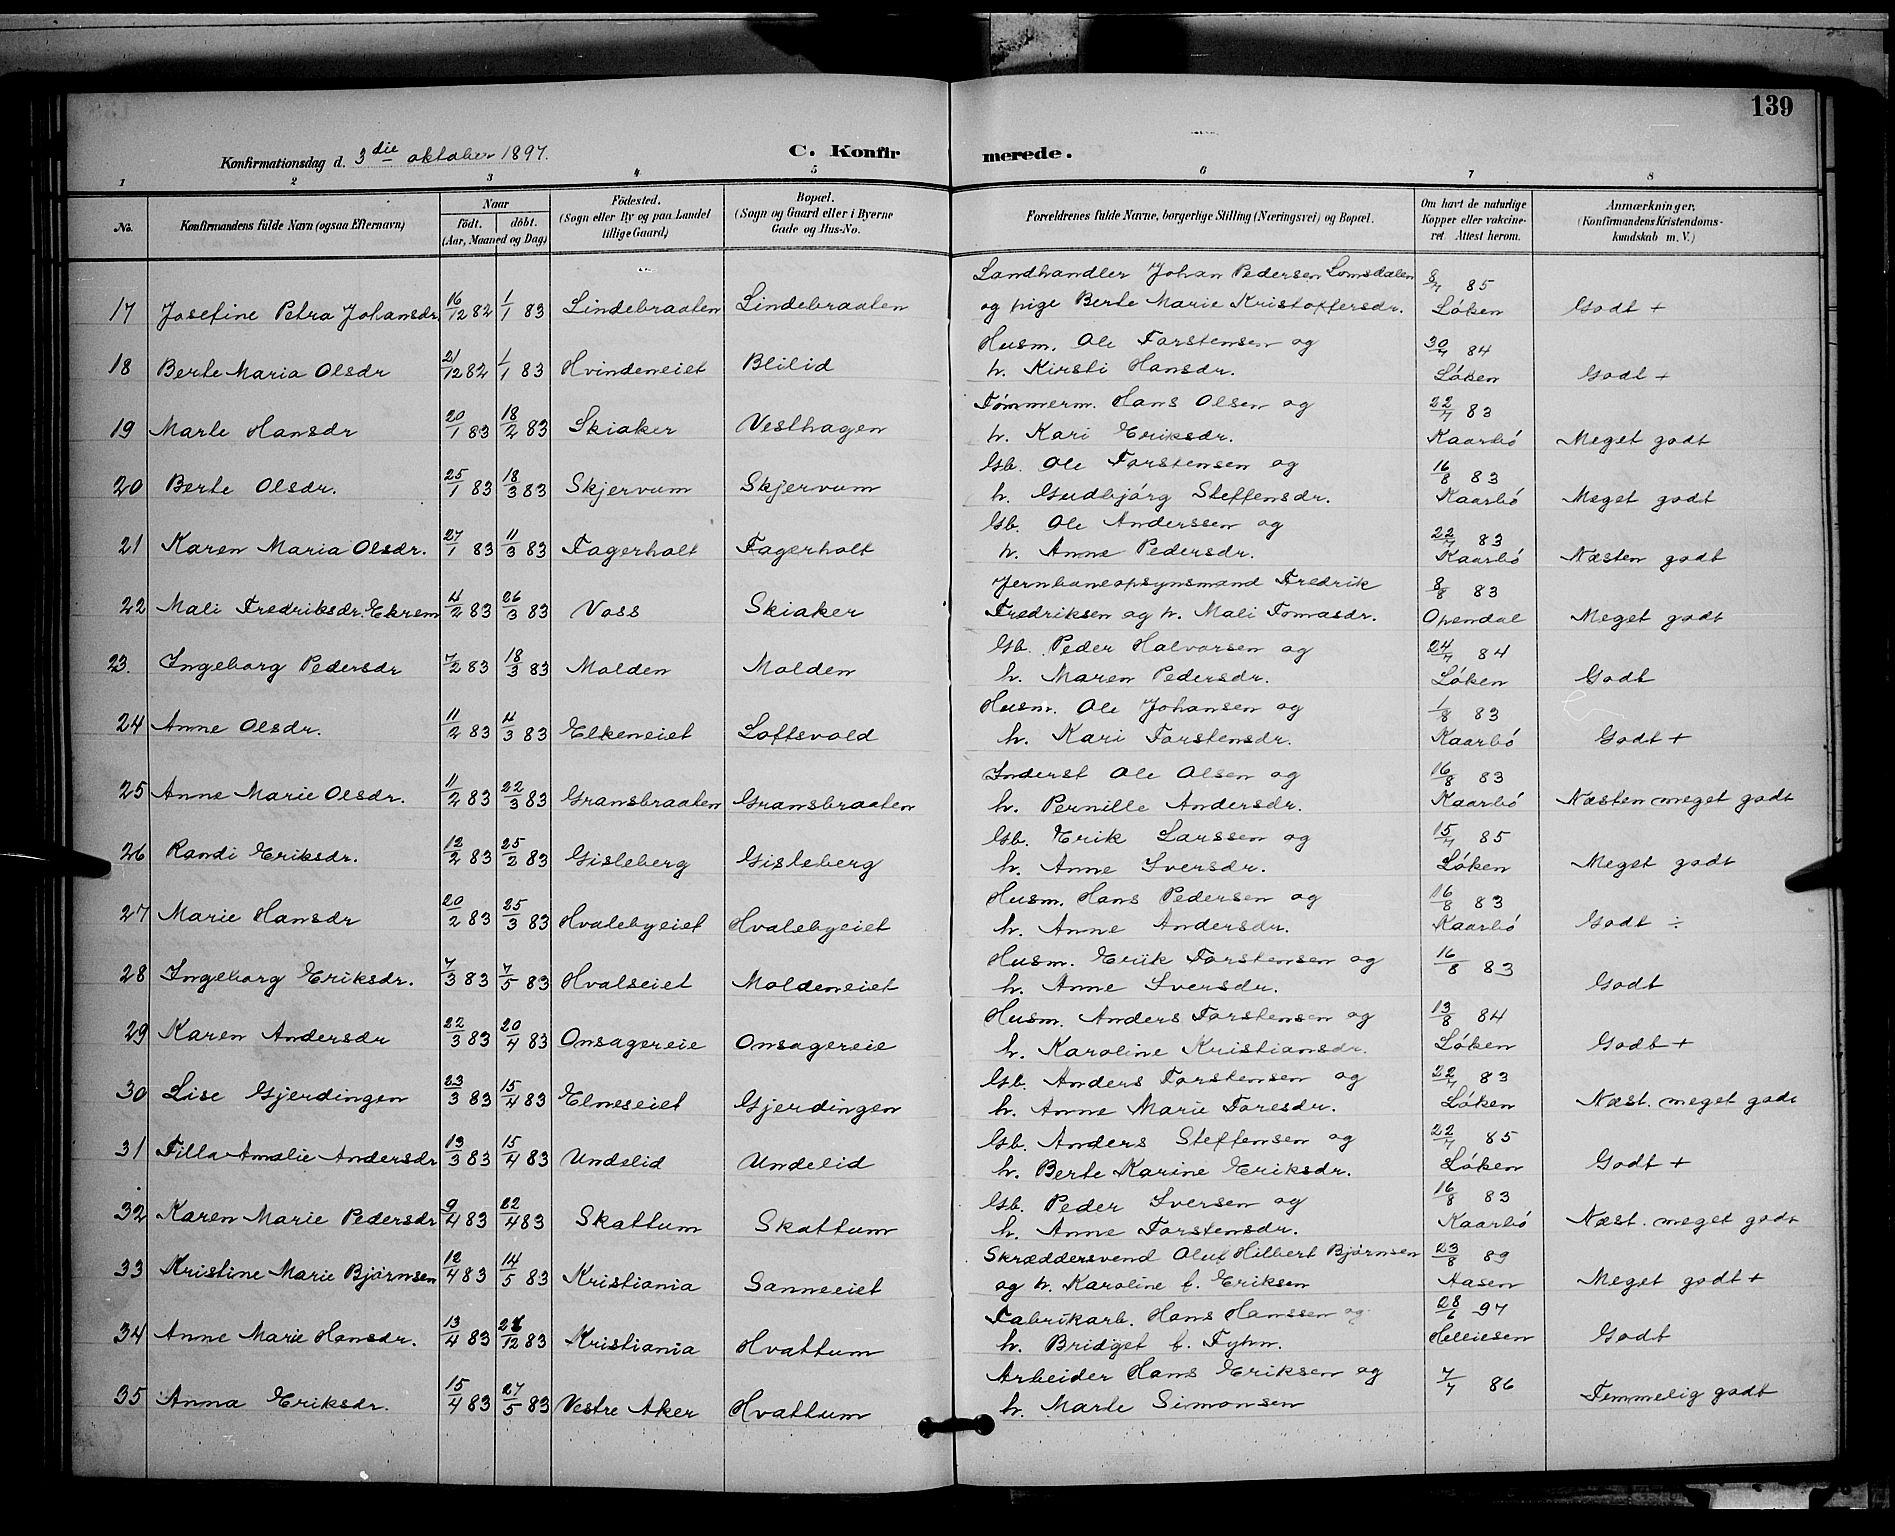 139
Konfirmationsdag d. 3die oktober 1897.
C. Konfirmerede.
1 2 3 4 5 6 7 8
No. | Konfirmandens fulde Navn (ogsaa Efternavn) | Naar födt. döbt. (Aar, Maaned og Dag) | Födested. (Sogn eller By og paa Landet tillige Gaard) | Bopæl. (Sogn og Gaard eller i Byerne Gade og Hus-No. | Forældrenes fulde Navne, borgerlige Stilling (Næringsvei) og Bopæl. | Om havt de naturlige Kopper eller vakcineret. Attest herom. | Anmærkninger, (Konfirmandens Kristendomskundskab m. V.)
Landhandler Johan Pedersen Lomsdalen 8/7 85
17 Josefine Petra Johansdr. 16/12 82 1/1 83 Lindebraaten Lindebraaten og pige Berte Marie Kristoffersdr. Løken Godt +
Husm. Ole Torstensen og 30/7 84
18 Berte Maria Olsdr 21/12 82 1/1 83 Hvindeneiet Blilid h. Kirsti Hansdr. Løken Godt +
Tømmerm. Hans Olsen og 22/7 83
19 Marte Hansdr 20/1 83 18/2 83 Skiaker Vesthagen h. Kari Eriksdr. Kaarbø Meget godt
Gb. Ole Torstensen og 16/8 83
20 Berte Olsdr. 25/1 83 18/3 83 Skjervum Skjervum h. Gudbjørg Steffensdr. Kaarbø Meget godt
Gb. Ole Anderssen og 22/7 83
21 Karen Maria Olsdr. 27/1 83 11/3 83 Fagerholt Fagerholt h. Anne Pedersdr. Kaarbø Næsten godt
Jernbaneopsynsmand Fredrik 8/8 83
22 Mali Fredriksdr. Ekrem 4/2 83 26/3 83 Voss Skiaker Fredriksen og h. Mali Tomasdr. Opendal Meget godt
Gb. Peder Halvorsen og 24/7 84
23. Ingeborg Pedersdr 7/2 83 18/3 83 Molden Molden h. Maren Pedersdr. Løken Godt
Husm. Ole Johansen og 1/8 83
24 Anne Olsdr. 11/2 83 4/3 83 Elkeneiet Loftsvold h. Kari Torstensdr. Kaarbø Godt +
Inderst Ole Olsen og 16/8 83
25 Anne Marie Olsdr. 11/2 83 22/3 83 Gransbraaten Gransbraaten h. Pernille Andersdr. Kaarbø Næsten meget godt
Gb. Erik Larssen og 15/7 85
26 Randi Eriksdr. 12/2 83 25/2 83 Gisleberg Gisleberg h. Anne Iversdr. Løken Meget godt
Husm. Hans Pedersen og 16/8 83
27 Marie Hansdr 20/2 83 25/3 83 Hvalebyeiet Hvalebyeiet h. Anne Andersdr. Kaarbø Godt ÷
Husm. Erik Torstensen og 16/8 83
28 Ingeborg Eriksdr. 7/3 83 7/5 83 Hvalseiet Moldeneiet h. Anne Iversdr. Godt
Husm. Anders Torstensen og 13/8 84
29 Karen Andersdr 22/3 83 20/4 83 Onsagereie Onsagereie h. Karoline Kristiansdr. Løken Godt +
Gb. Anders Torstensen og 22/7 83
30 Lise Gjerdingen 23/3 83 15/4 83 Elneseiet Gjerdingen h. Anne Marie Toresdr. Løken Næst. meget godt
Gb. Anders Steffensen og 22/7 85
31 Tilla Amalie Andersdr 13/3 83 15/4 83 Undelid Undelid h. Berte Karine Eriksdr. Løken Godt +
Gb. Peder Iversen og 16/8 83
32 Karen Marie Pedersdr 9/4 83 22/4 83 Skattum Skattum h. Anne Torstensdr. Kaarbø Næst. meget godt
Skræddersvend Oluf Hilbert Bjørnsen 23/8 89
33 Kristine Marie Bjørnsen 12/4 83 14/5 83 Kristiania Sanneeiet og h. Karoline f. Eriksen Aasen Meget godt +
Fabrikarb. Hans Hanssen og 28/6 97
34 Anne Marie Hansdr. 13/4 83 /12 83 Kristiania Hvattum h. Bridget f. Godt
Arbeider Hans Eriksen og 7/7 86
35 Anna Eriksdr. 15/4 83 27/5 83 Vestre Aker Hvattum h. Marte Simonsen Temmelig godt